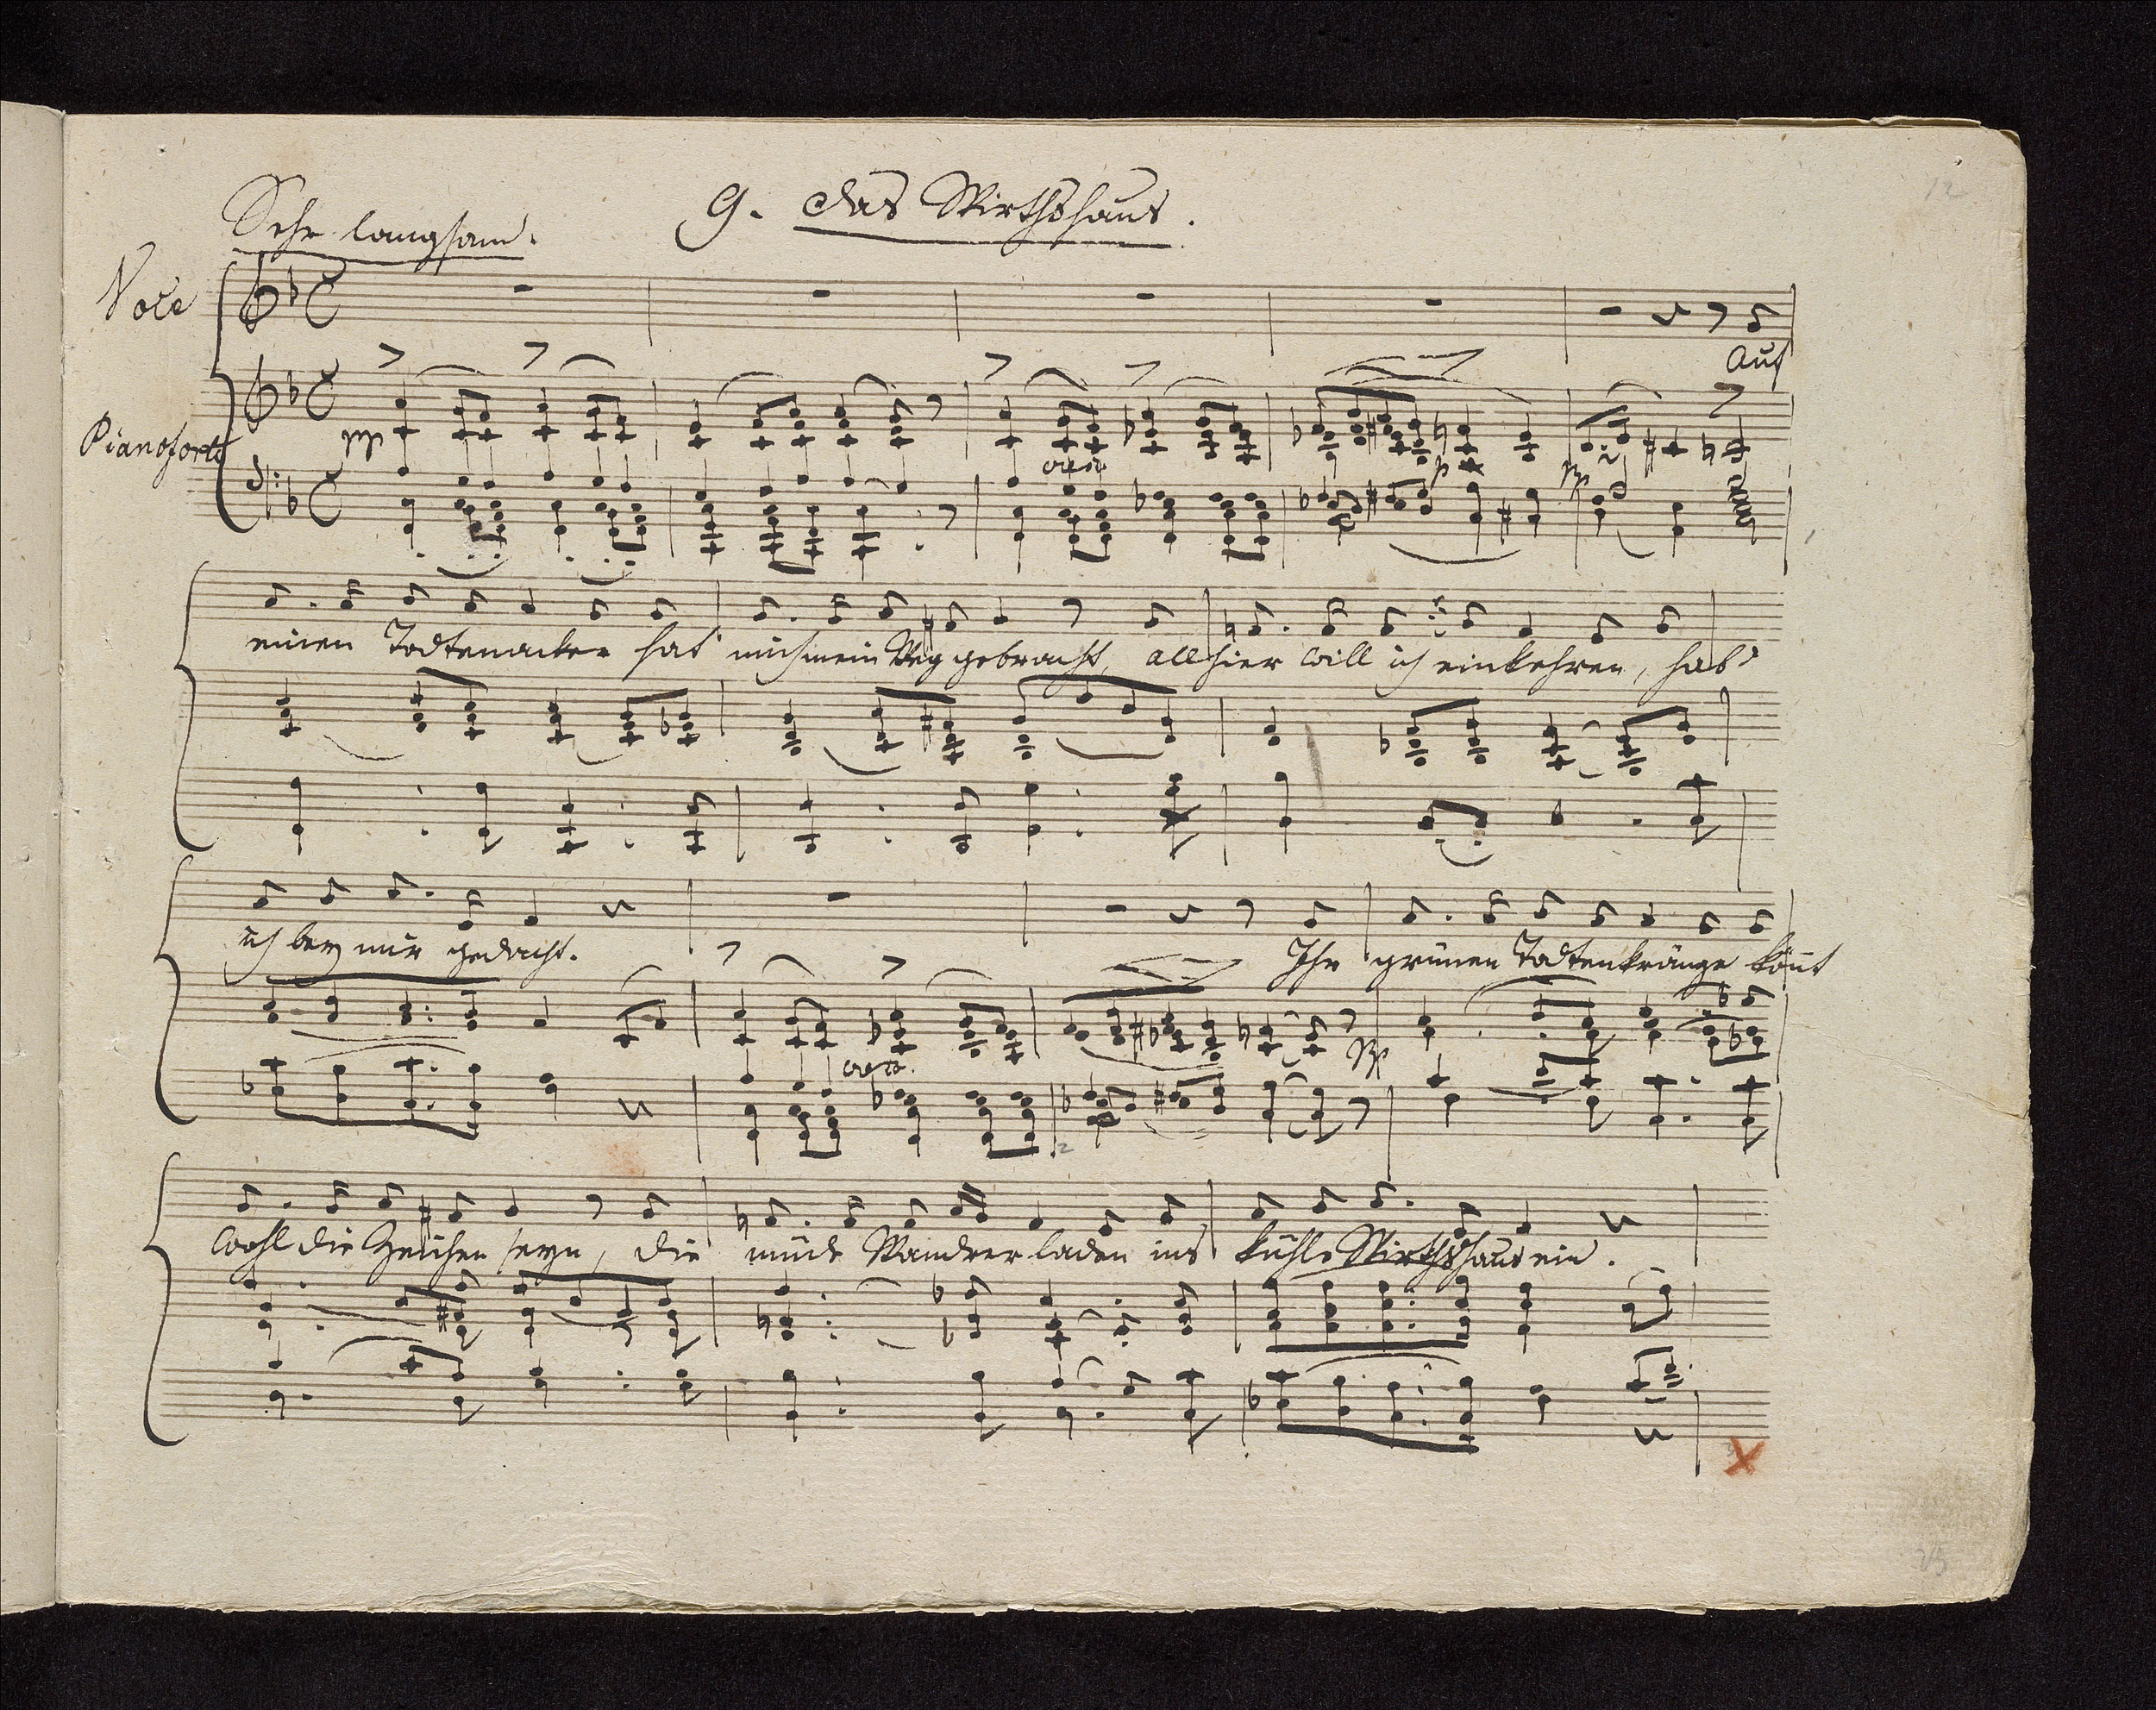 12
9. Das Wirthshaus.
Sehr langsam.
Voce
Auf
Pianoforte
pp
cresc
p
pp
einen Todtenacker hat mich mein Weg gebracht, allhier will ich einkehren, hab'
ich bey mir gedacht.
Ihr grünen Todtenkränze könnt
cresc.
pp
wohl die Zeichen seyn, die müde Wandrer laden ins kühle Wirthshaus ein.